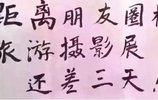 距离朋友圈
旅游摄影展
还差三天